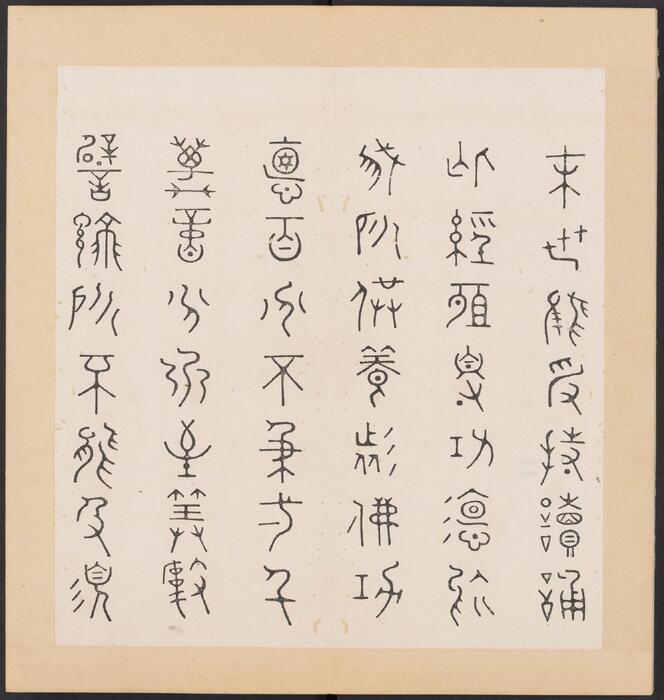 末世能受持讀誦
此經所得功德於
我所供養諸佛功
德百分不及一千
萬億分乃至算數
譬喻所不能及須